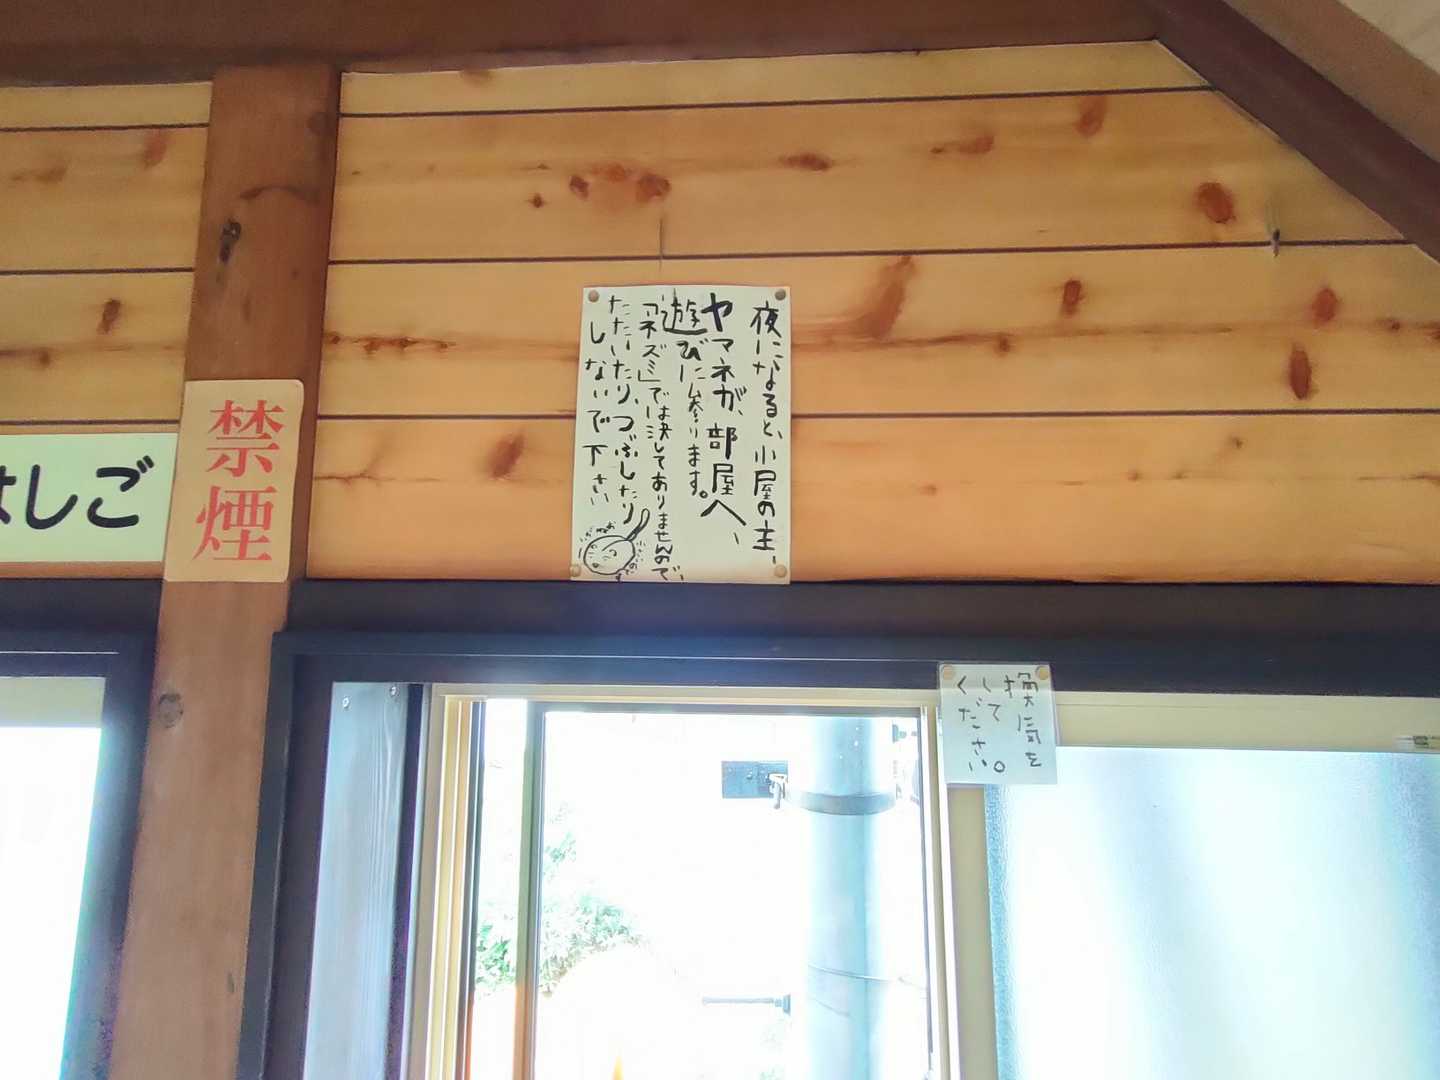 はしご
禁煙
夜になると、小屋の主、
ヤマネが、部屋へ、
遊びに参ります。
「ネズミ」では決してありませんので、
たたいたり、つぶしたり
しないで下さい
換気を
して
ください。